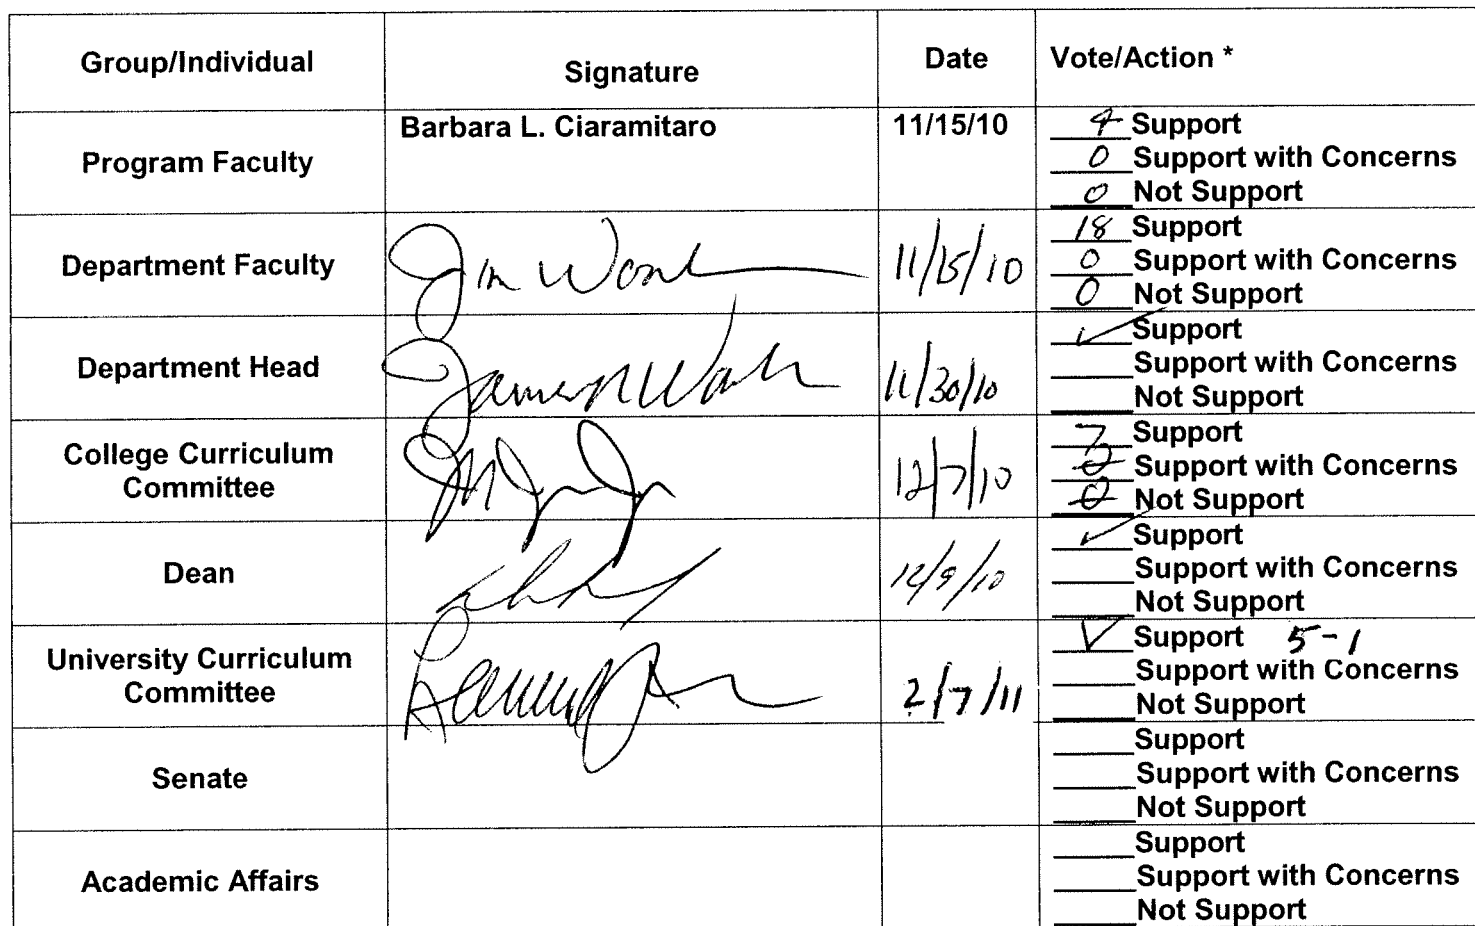 Group/Individual Signature Date Vote/Action *
Program Faculty Barbara L. Ciaramitaro 11/15/10 4 Support
0 Support with Concerns
0 Not Support
Department Faculty Jim 11/15/10 18 Support
0 Support with Concerns
0 Not Support
Department Head James 11/30/10 ✓ Support
Support with Concerns
Not Support
College Curriculum
Committee 12/7/10 7 Support
0 Support with Concerns
0 Not Support
Dean 12/9/10 ✓ Support
Support with Concerns
Not Support
University Curriculum
Committee 2/7/11 ✓ Support 5-1
Support with Concerns
Not Support
Senate Support
Support with Concerns
Not Support
Academic Affairs Support
Support with Concerns
Not Support